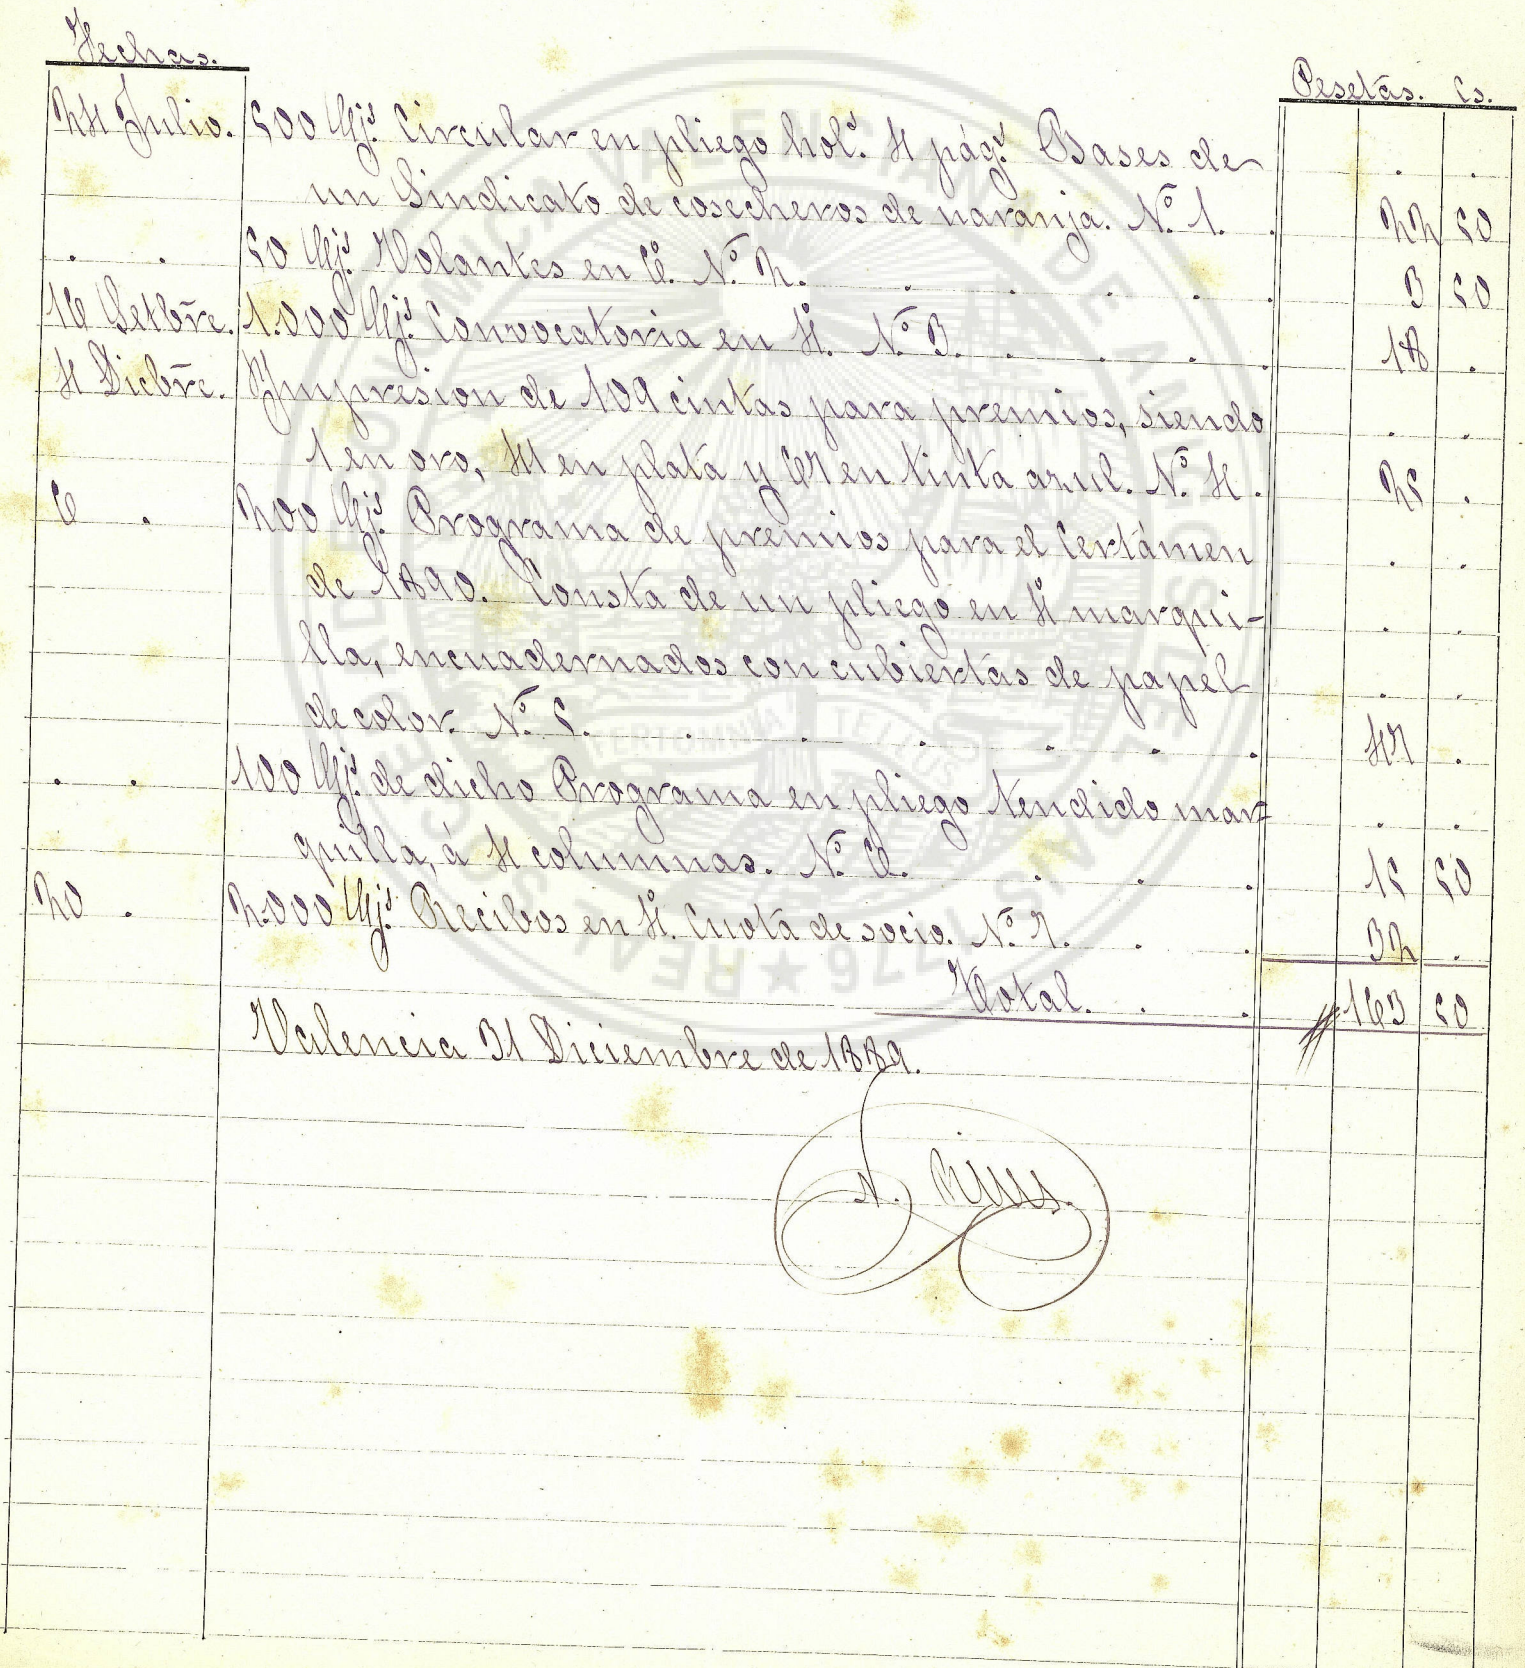 Fechas. Pesetas. Cs.
24 Julio. 500 Ejs. Circular en pliego hol.ª 4 págs. Bases de
un Sindicato de cosecheros de naranja. N.º 1. 22 50
. . 50 Ejs. Volantes en 6.º N.º 2. 3 50
16 Setbre. 1.000 Ejs. Convocatoria en 4.º N.º 3. 18 .
4 Dicbre. Impresion de 109 cintas para premios, siendo
1 en oro, 41 en plata y 67 en tinta azul. N.º 4. 25 .
6 . 200 Ejs. Programa de premios para el Certámen
de 1890. Consta de un pliego en 4.º marqui-
lla, encuadernados con cubiertas de papel
de color. N.º 5. 47 .
. . 100 Ejs. de dicho Programa en pliego tendido mar-
quilla, á 4 columnas. N.º 6. 15 50
20 . 2.000 Ejs. Recibos en 4.º Cuota de socio. N.º 7. 32 .
Total. 163 50
Valencia 31 Diciembre de 1889.
N. Rius
REAL SOCIEDAD ECONÓMICA VALENCIANA DE AMIGOS DEL PAÍS 1776